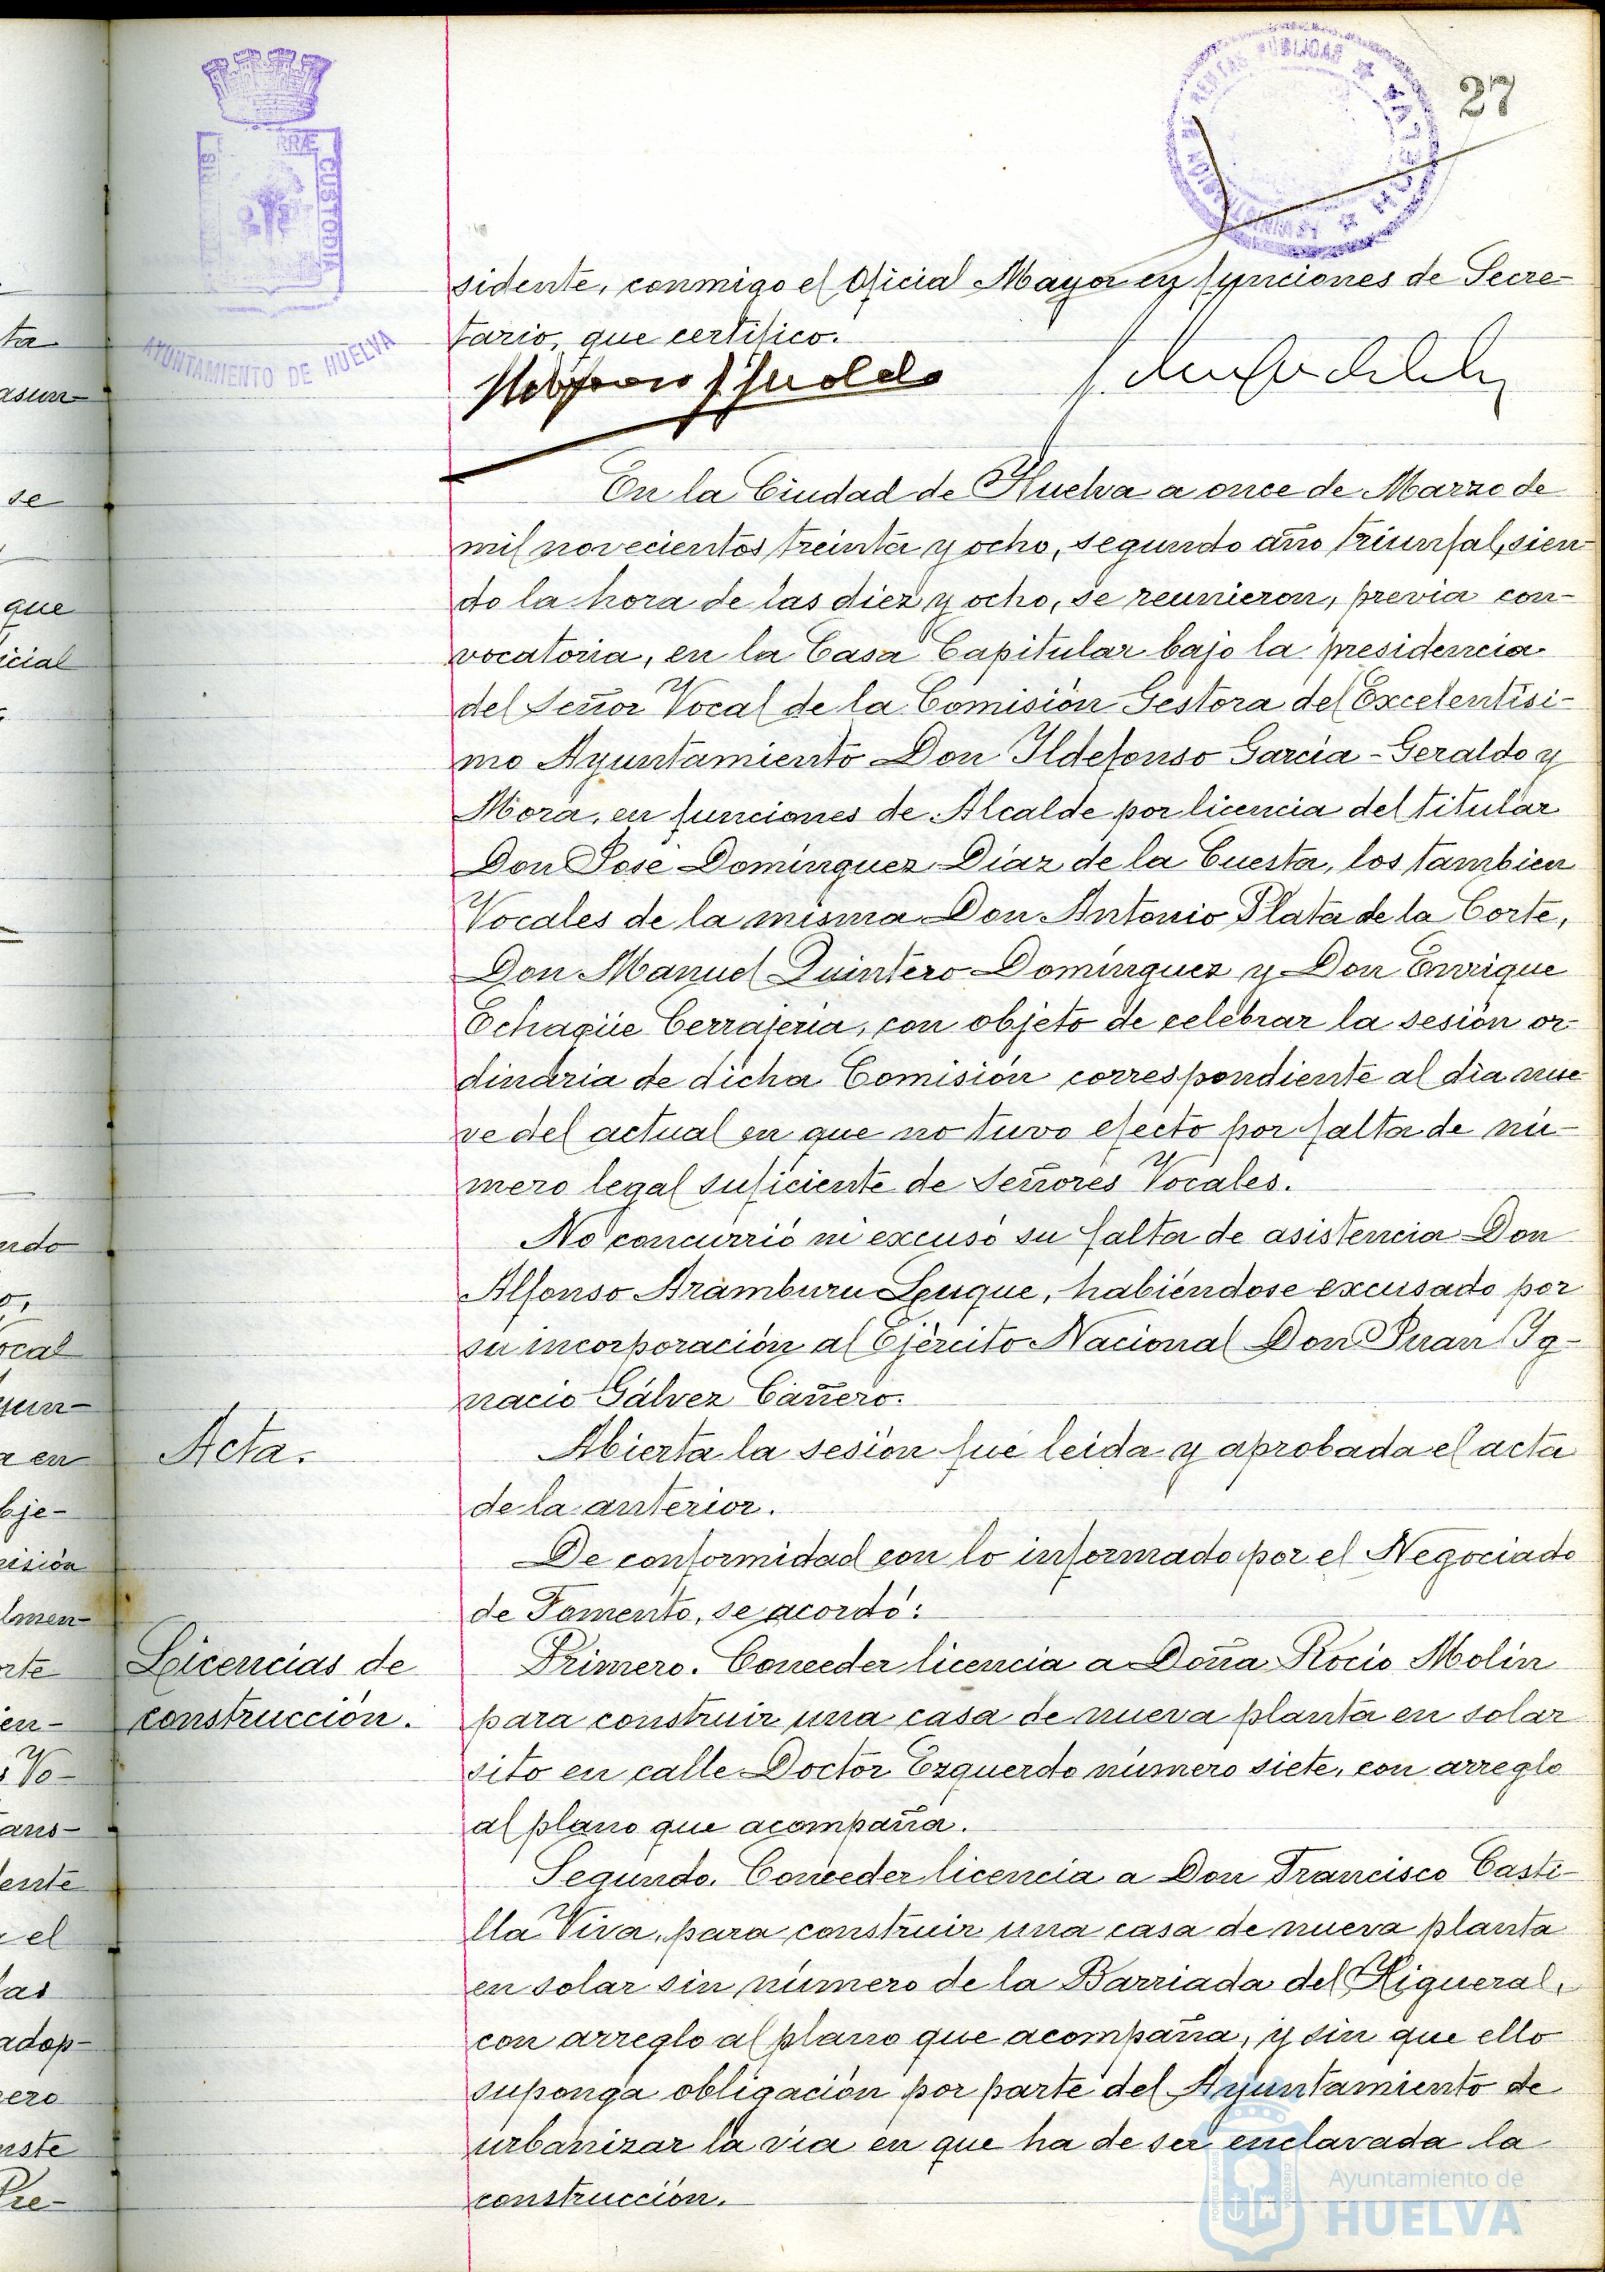 27
sidente, conmigo el Oficial Mayor en funciones de Secre-
tario, que certifico.
En la Ciudad de Huelva a once de Marzo de
mil novecientos treinta y ocho, segundo año triunfal, sien-
do la hora de las diez y ocho, se reunieron, previa con-
vocatoria, en la Casa Capitular bajo la presidencia
del Señor Vocal de la Comisión Gestora del Excelentísi-
mo Ayuntamiento Don Ildefonso García-Geraldo y
Mora, en funciones de Alcalde por licencia del titular
Don José Domínguez Díaz de la Cuesta, los tambien
Vocales de la misma Don Antonio Plata de la Corte,
Don Manuel Quintero Domínguez y Don Enrique
Echagüe Cerrajería, con objeto de celebrar la sesión or-
dinaria de dicha Comisión correspondiente al día nue-
ve del actual en que no tuvo efecto por falta de nú-
mero legal suficiente de Señores Vocales.
No concurrió ni excusó su falta de asistencia Don
Alfonso Aramburu Luque, habiéndose excusado por
su incorporación al Ejército Nacional Don Juan Ig-
nacio Gálvez Cañero.
Acta.
Abierta la sesión fué leida y aprobada el acta
de la anterior.
De conformidad con lo informado por el Negociado
de Fomento, se acordó:
Licencias de
construcción.
Primero. Conceder licencia a Doña Rocio Molin
para construir una casa de nueva planta en solar
sito en calle Doctor Ezquerdo número siete, con arreglo
al plano que acompaña.
Segundo. Conceder licencia a Don Francisco Casti-
lla Viva, para construir una casa de nueva planta
en solar sin número de la Barriada del Higueral,
con arreglo al plano que acompaña, y sin que ello
suponga obligación por parte del Ayuntamiento de
urbanizar la vía en que ha de ser enclavada la
construcción.
CUSTODIA
AYUNTAMIENTO DE HUELVA
Ayuntamiento de
HUELVA